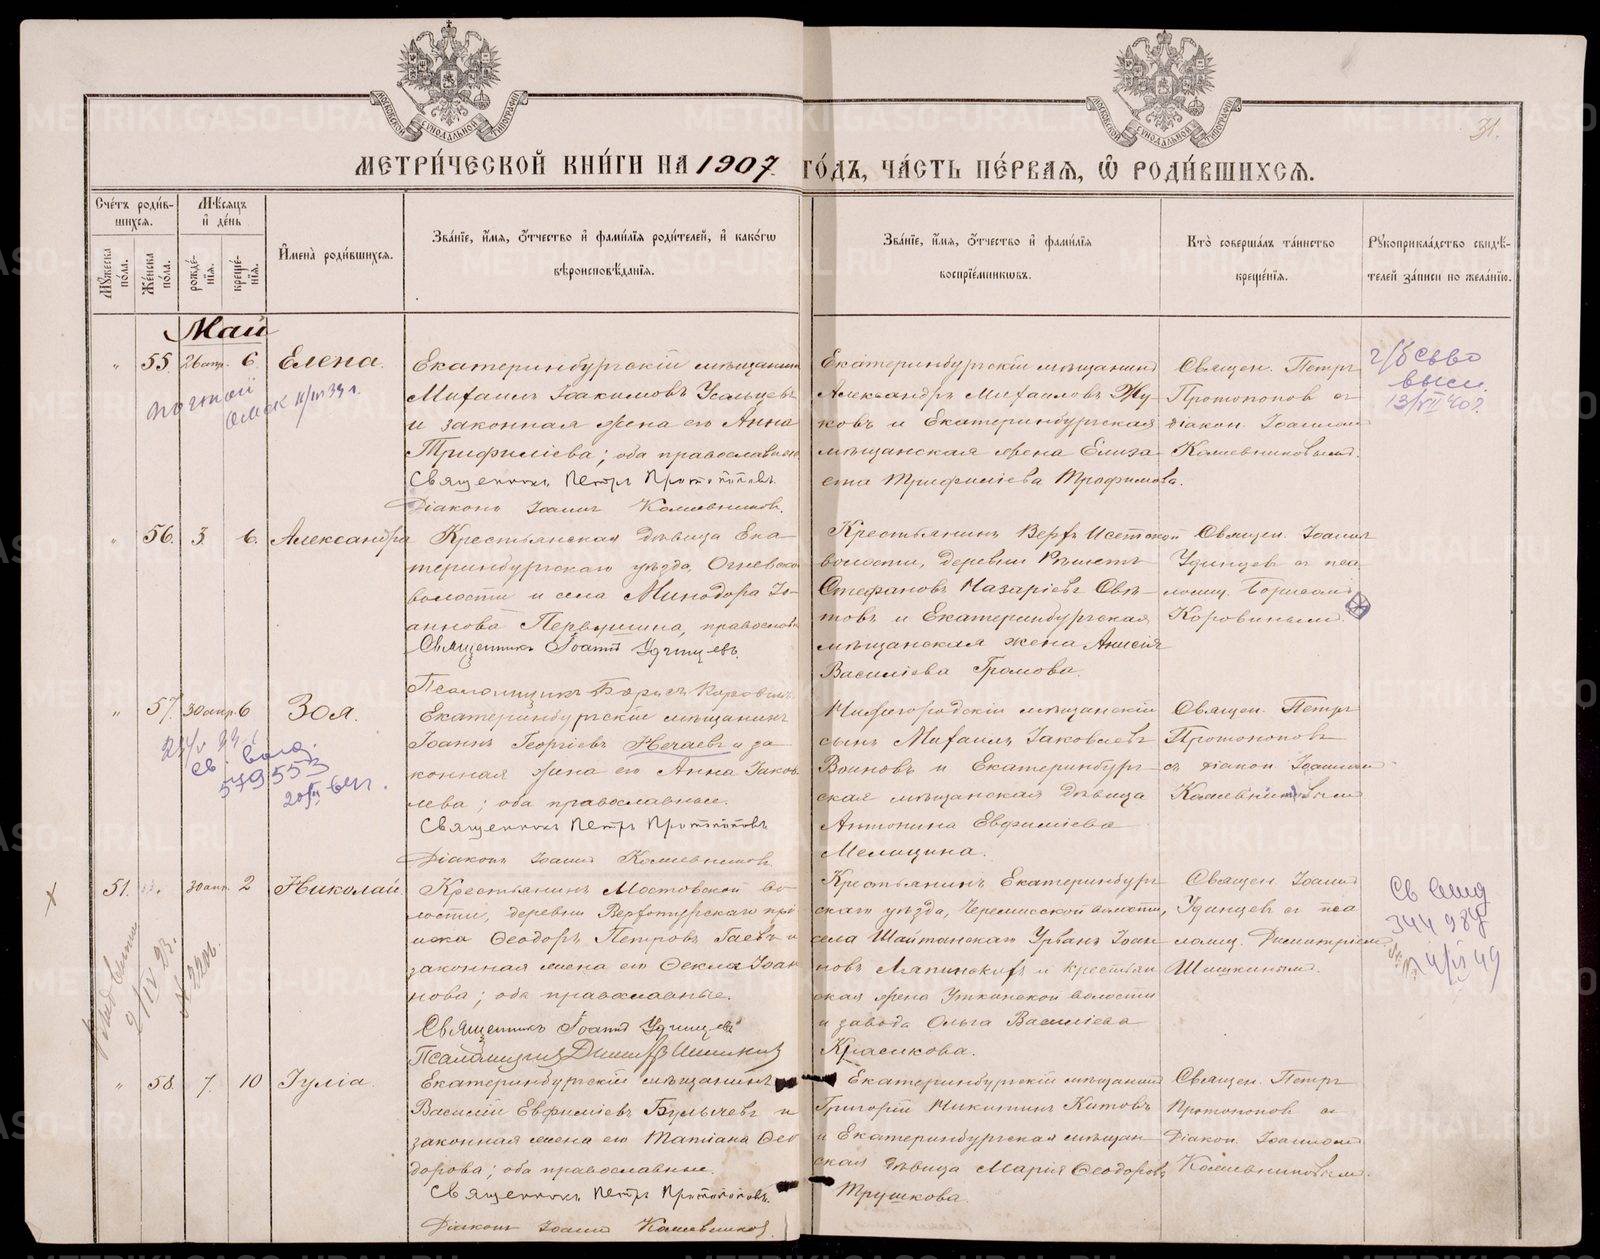 31.
МЕТРИ́ЧЕСКОЙ КНИ́ГИ НА 1907 ГО́ДЪ, ЧА́СТЬ ПЕ́РВАѦ, Ѽ РОДИ́ВШИХСѦ.
МОСКОВСКОЙ СѴНОДАЛЬНОЙ ТИПОГРАФІИ
МОСКОВСКОЙ СѴНОДАЛЬНОЙ ТИПОГРАФІИ
Сче́тъ роди́вшихсѧ.
Мꙋ́жеска по́ла.
Же́нска по́ла.
Мѣ́сѧцъ и҆ де́нь
рожде́нїѧ.
креще́нїѧ.
И҆мена̀ роди́вшихсѧ.
Зва́нїе, и҆́мѧ, ѻ҆́тчество и҆ фами́лїѧ роди́телей, и҆ како́гѡ
вѣроисповѣ́данїѧ.
Зва́нїе, и҆́мѧ, ѻ҆́тчество и҆ фами́лїѧ
воспрїе́мникѡвъ.
Кто̀ соверша́лъ та́инство
креще́нїѧ.
Рꙋкоприкла́дство свидѣ́-
телей за́писи по жела́нїю.
Май
" 55 26 апр. 6 Елена.
Екатеринбургскій мѣщанинъ
Михаилъ Іоакимовъ Усольцевъ
и законная жена его Анна
Трифиліева; оба православные
Священникъ Петръ Протопоповъ.
Діаконъ Іоаннъ Кожевниковъ.
Екатеринбургскій мѣщанинъ
Александръ Михаиловъ Жу-
ковъ и Екатеринбургская
мѣщанская жена Елиза-
Трифиліева Трофимова.
Священ. Петръ
Протопопов съ
діакон. Іоанном
Кожевниковымъ.
13/VII 40 г.
" 56. 3. 6. Александра
Крестьянская дѣвица Ека-
теринбургскаго уѣзда, Огневской
волости и села Минодора Іо-
аннова Первушина, православн.
Священникъ Іоаннъ Удинцевъ.
Псаломщикъ Борисъ Коровинъ.
Крестьянинъ Верхъ Исетской
волости, деревни Рѣшетъ
Стефановъ Назаріевъ Свѣ-
товъ и Екатеринбургская
мѣщанская жена Анисія
Василіева Громова.
Священ. Іоаннъ
Удинцев съ пса
ломщ. Борисомъ
Коровинымъ.
" 57. 30 апр. 6 Зоя.
Екатеринбургскій мѣщанинъ
Іоаннъ Георгіевъ Нечаевъ и за
конная жена его Анна Іаков
лева; оба православные.
Священникъ Петръ Протопоповъ
Діаконъ Іоаннъ Кожевниковъ
Нижегородскій мѣщанскій
сынъ Михаилъ Іаковлевъ
Воиновъ и Екатеринбург-
ская мѣщанская дѣвица
Антонина Евфиміева
Мелицина.
Священ. Петръ
Протопоповъ
съ діакон. Іоанном
Кожевниковымъ
579553
51. 30 апр. 2 Николай.
Крестьянинъ Мостовской во-
лости, деревни Верхотурскаго прі-
иска Ѳеодоръ Петровъ Гаевъ и
законная жена его Ѳекла Іоан
нова; оба православные.
Священникъ Іоаннъ Удинцевъ
Псаломщикъ Димитрій Шишкинъ
Крестьянинъ Екатеринбург
скаго уѣзда, Черемисской волости,
села Шайтанскаго Урванъ Іоан
новъ Ляпинскихъ и крестьян
ская жена Уткинской волости
и завода Ольга Василіева
Красикова.
Священ. Іоаннъ
Удинцевъ съ пса
ломщ. Димитріем
Шишкинымъ.
344984
" 58 7. 10 Іулія.
Екатеринбургскій мѣщанинъ
Василій Евфиміевъ Булычевъ и
законная жена его Татіана Ѳео
дорова; оба православные.
Священникъ Петръ Протопоповъ.
Діаконъ Іоаннъ Кожевниковъ.
Екатеринбургскій мѣщанинъ
Григорій Никитинъ Китовъ
и Екатеринбургская мѣщан
ская дѣвица Марія Ѳеодоров.
Трушкова.
Священ. Петръ
Протопопов съ
діакон. Іоанномъ
Кожевниковымъ.
METRIKI.GASO-URAL.RU